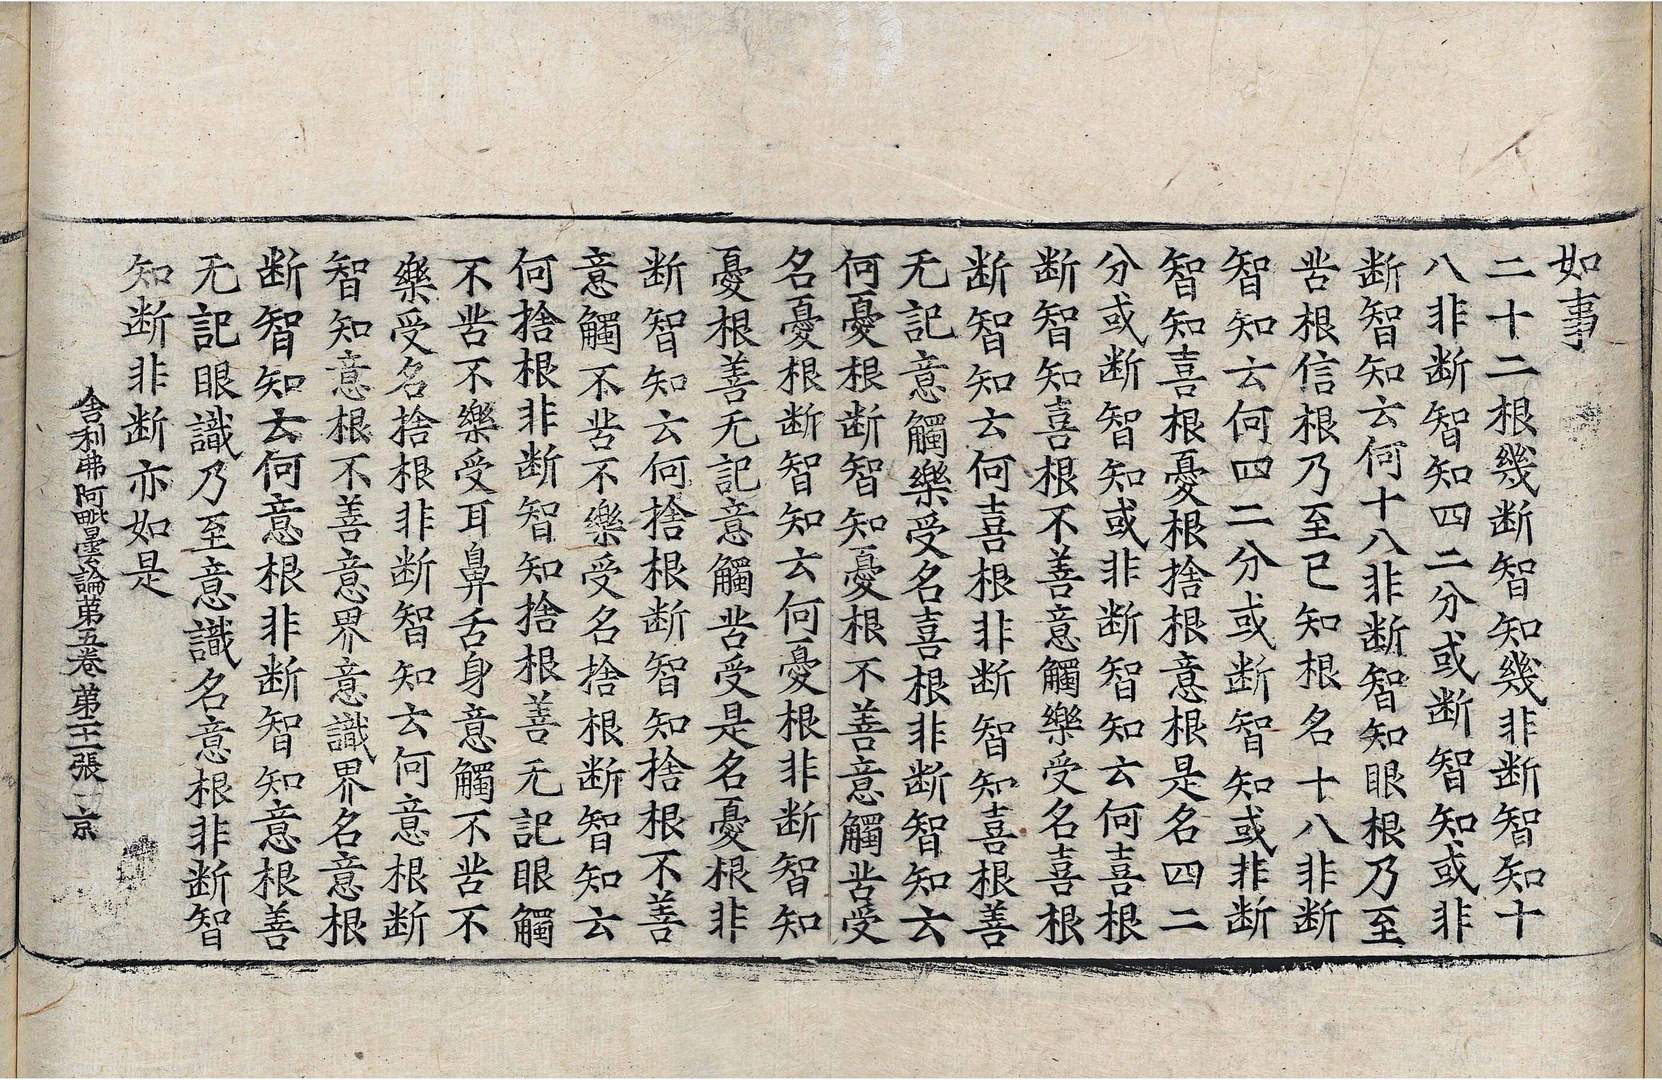 如事
二十二根幾断智知幾非断智知十
八非断智知四二分或断智知或非
断智知云何十八非断智知眼根乃至
苦根信根乃至已知根名十八非断
智知云何四二分或断智知或非断
智知喜根憂根捨根意根是名四二
分或断智知或非断智知云何喜根
断智知喜根不善意觸樂受名喜根
断智知云何喜根非断智知喜根善
无記意觸樂受名喜根非断智知云
何憂根断智知憂根不善意觸苦受
名憂根断智知云何憂根非断智知
憂根善无記意觸苦受是名憂根非
断智知云何捨根断智知捨根不善
意觸不苦不樂受名捨根断智知云
何捨根非断智知捨根善无記眼觸
不苦不樂受耳鼻舌身意觸不苦不
樂受名捨根非断智知云何意根断
智知意根不善意界意識界名意根
断智知云何意根非断智知意根善
无記眼識乃至意識名意根非断智
知断非断亦如是
舍利弗阿毗曇論第五卷 第二十二張 京